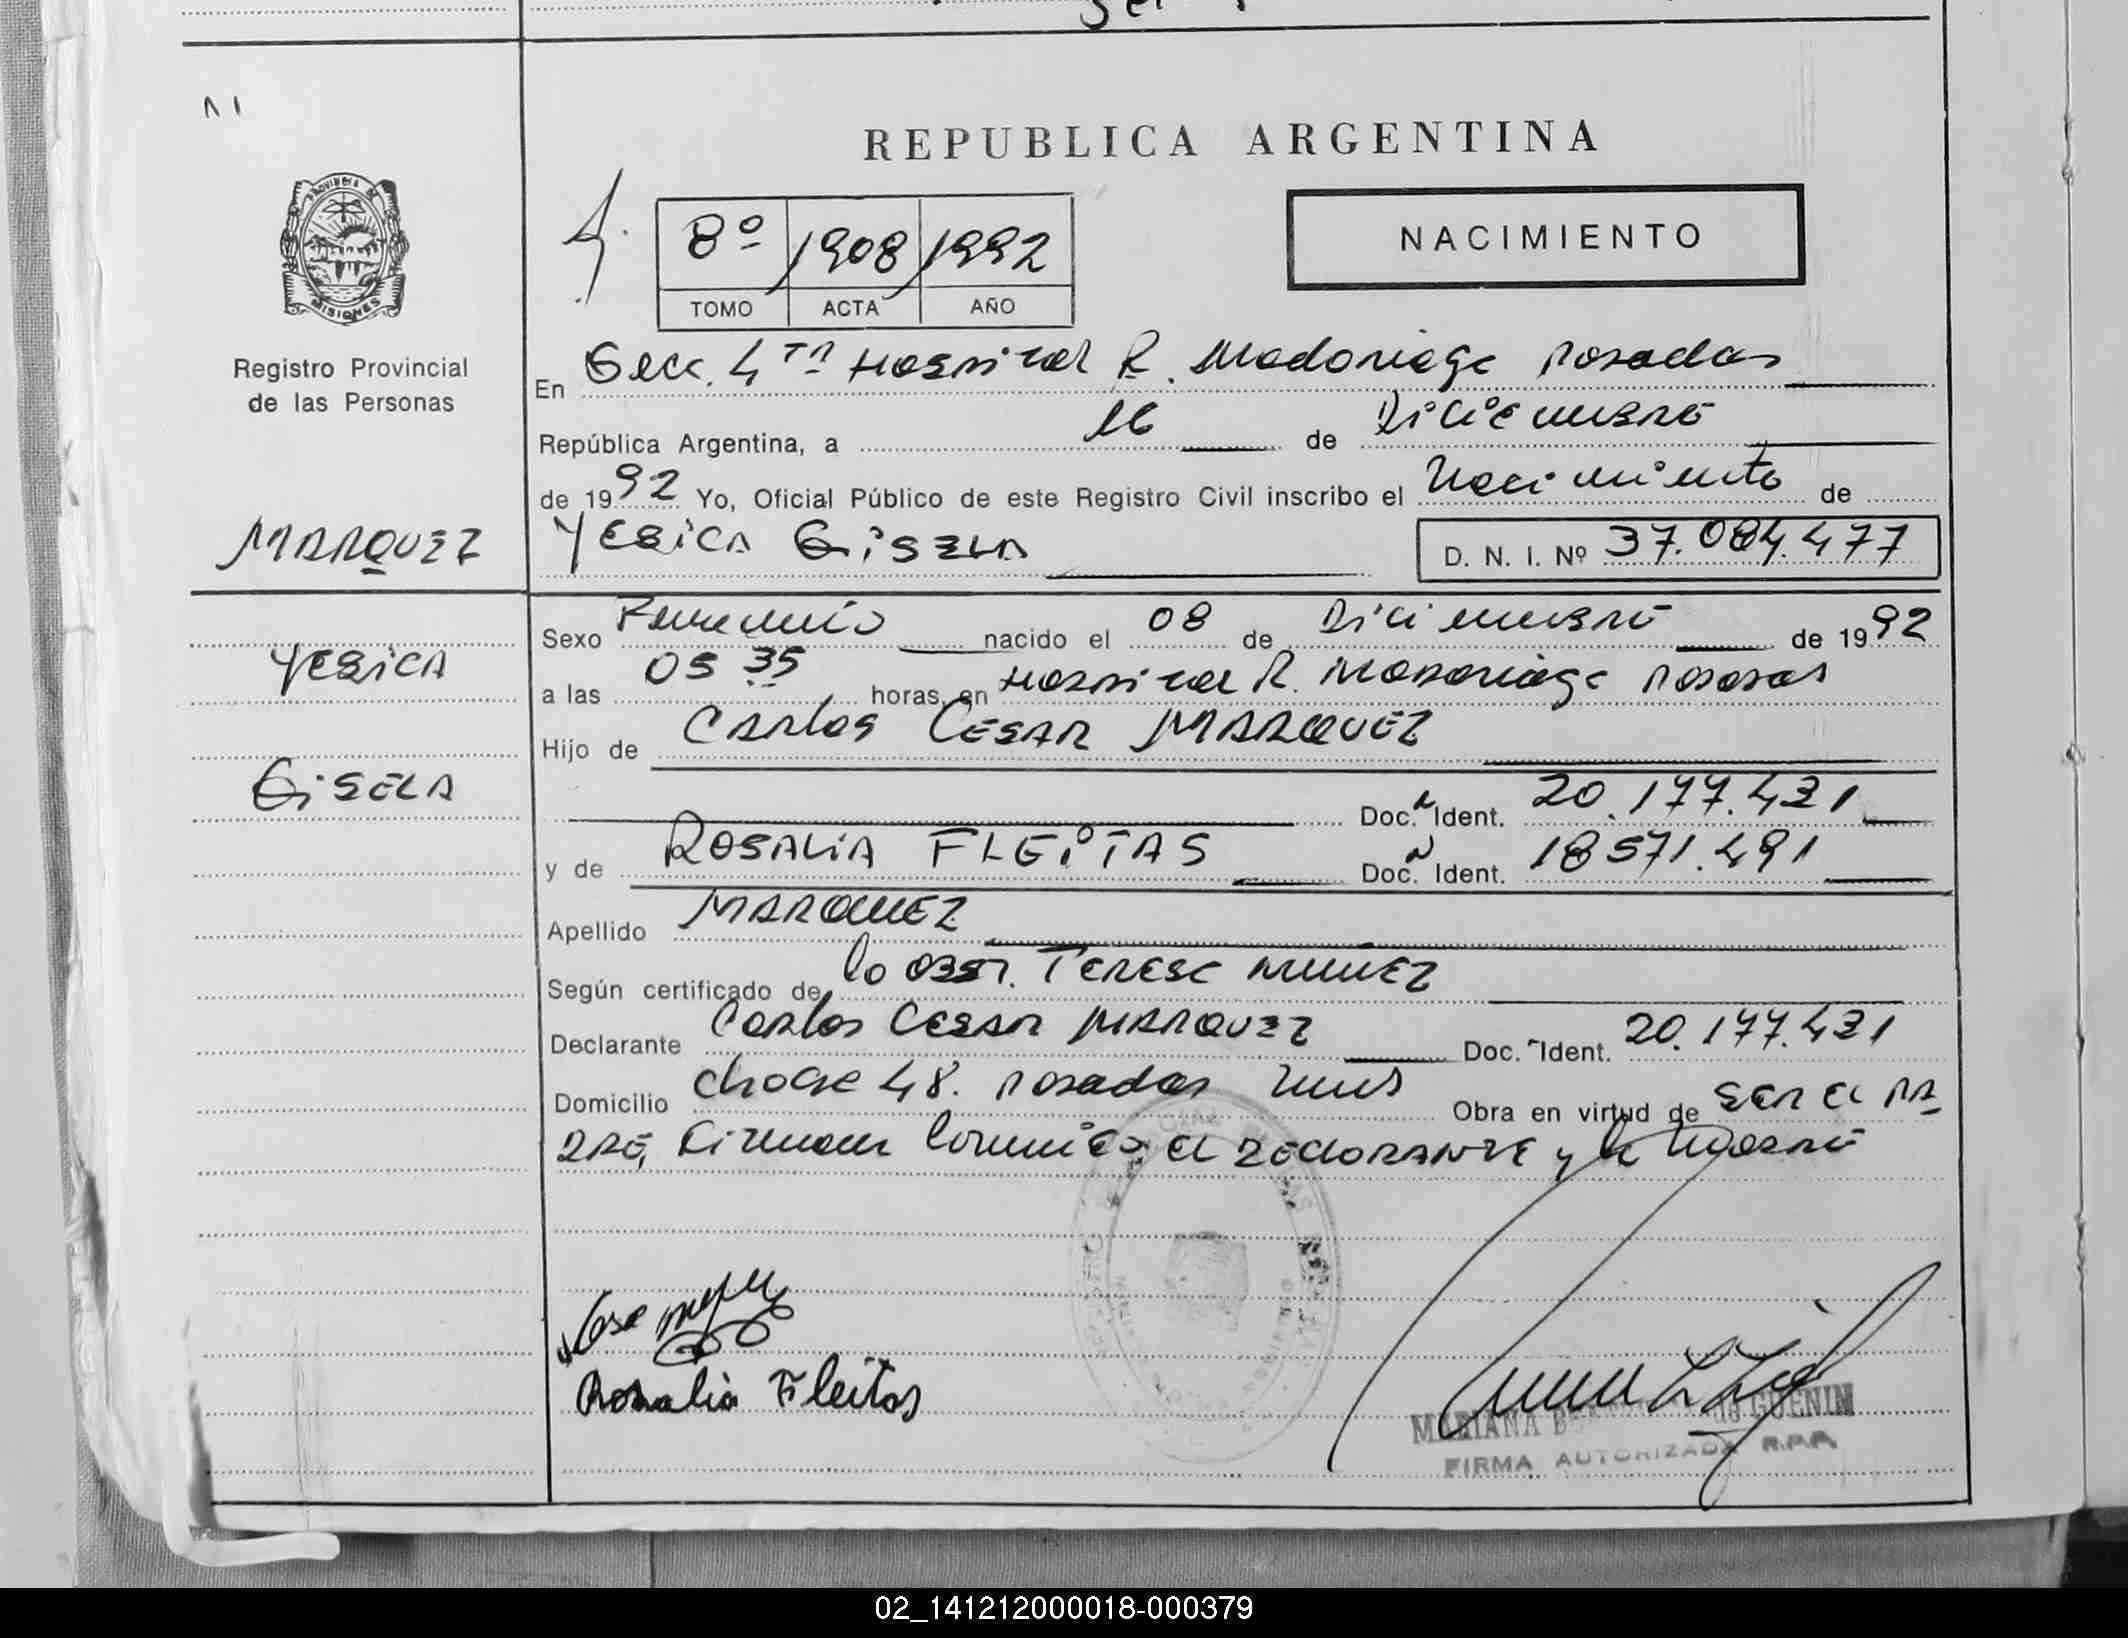 REPUBLICA ARGENTINA
NACIMIENTO
8º 1908 1992
TOMO ACTA AÑO
PROVINCIA DE
MISIONES
Registro Provincial
de las Personas
MARQUEZ
YESICA
GISELA
En Secc. 4ta Hospital R. Madariaga Posadas
República Argentina, a 16 de Diciembre
de 1992 Yo, Oficial Público de este Registro Civil inscribo el Nacimiento de
YESICA GISELA D. N. I. Nº 37.084.477
Sexo Femenino nacido el 08 de Diciembre de 1992
a las 05 35 horas, en Hospital R. Madariaga Posadas
Hijo de Carlos CESAR MARQUEZ
Doc. Ident. 20.177.431
y de ROSALIA FLEITAS Doc. Ident. 18571.491
Apellido MARQUEZ
Según certificado de la Obst. Terese Nuñez
Declarante Carlos Cesar MARQUEZ Doc. Ident. 20.177.431
Domicilio Chacre 48. Posadas Mnes Obra en virtud de SER el PA
DRE, Firman Conmigo el DECLARANTE y la Madre
Rosalia Fleitas
MARIANA de GUENIN
FIRMA AUTORIZADA R.P.P.
02_141212000018-000379